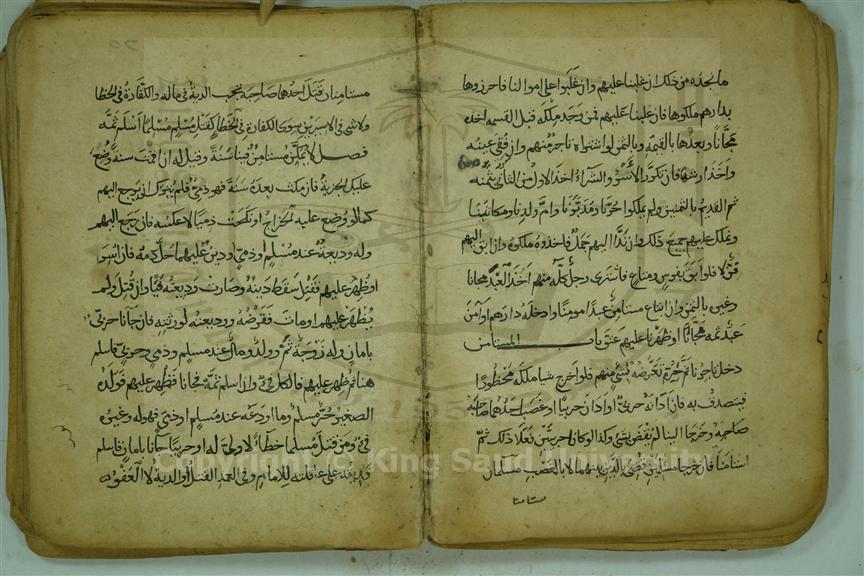 ما نجده من ذلك ان غلبنا عليهم وان غلبوا على اموالنا فاحرزوها
بدارهم ملكوها فان غلبنا عليهم فمن وجد ملكه قبل القسمة اخذه
مجانا وبعدها بالقيمة وبالثمن لو اشتراه تاجر منهم وان فقئ عينه
واخذ ارشها فان تكرر الاسر والشراء اخذ الاول من الثاني بثمنه
ثم القديم بالثمنين ولم يملكوا حرنا ومدبرنا وام ولدنا ومكاتبنا
ونملك عليهم جميع ذلك وان ند اليهم جمل فاخذوه ملكوه وان ابق اليهم
قن لا فلو ابق بفرس ومتاع فاشترى رجل كله منهم اخذ العبد مجانا
وغيره بالثمن وان ابتاع مستامن عبدا مومنا وادخله دارهم او آمن
عبد ثمه فجاءنا او ظهرنا عليهم عتق باب المستامن
دخل تاجرنا ثم حرم تعرضه لشئ منهم فلو اخرج شيا ملكه محظورا
فيتصدق به فان ادانه حربي او ادان حربيا او غصب احدهما صاحبه
وخرجا الينا لم يقض بشئ وكذا لو كانا حربيين فعلا ذلك ثم
استامنا فان خرجا مسلمين قضي بالدين بينهما لا بالغصب مسلمان
مستامنا
مستامنان قتل احدهما صاحبه تجب الدية في ماله والكفارة في الخطا
ولا شئ في الاسيرين سوى الكفارة في الخطا كقتل مسلم مسلما اسلم ثمه
فصل لا يمكن مستامن فينا سنة وقيل له ان اقمت سنة وضع
عليك الجزية فان مكث بعده سنة فهو ذمي فلم يترك ان يرجع اليهم
كما لو وضع عليه الخراج او نكحت ذميا لا عكسه فان رجع اليهم
وله وديعة عند مسلم او ذمي او دين عليهما حل دمه فان اسر
او ظهر عليهم فقتل سقط دينه وصارت وديعته فيا وان قتل ولم
يظهر عليهم او مات فقرضه ووديعته لورثته فان جاءنا حربي
بامان وله زوجة ثم وولد ومال عند مسلم وذمي وحربي فاسلم
هنا ثم ظهر عليهم فالكل فئ وان اسلم ثمه فجانا فظهر عليهم فولده
الصغير حر مسلم وما اودعه عند مسلم او ذمي فهو له وغيره
فئ ومن قتل مسلما خطا لا ولي له او حربيا جاءنا بامان فاسلم
فديته على عاقلته للامام وفي العمد القتل او الدية لا العفو
Copyright © King Saud University
1957